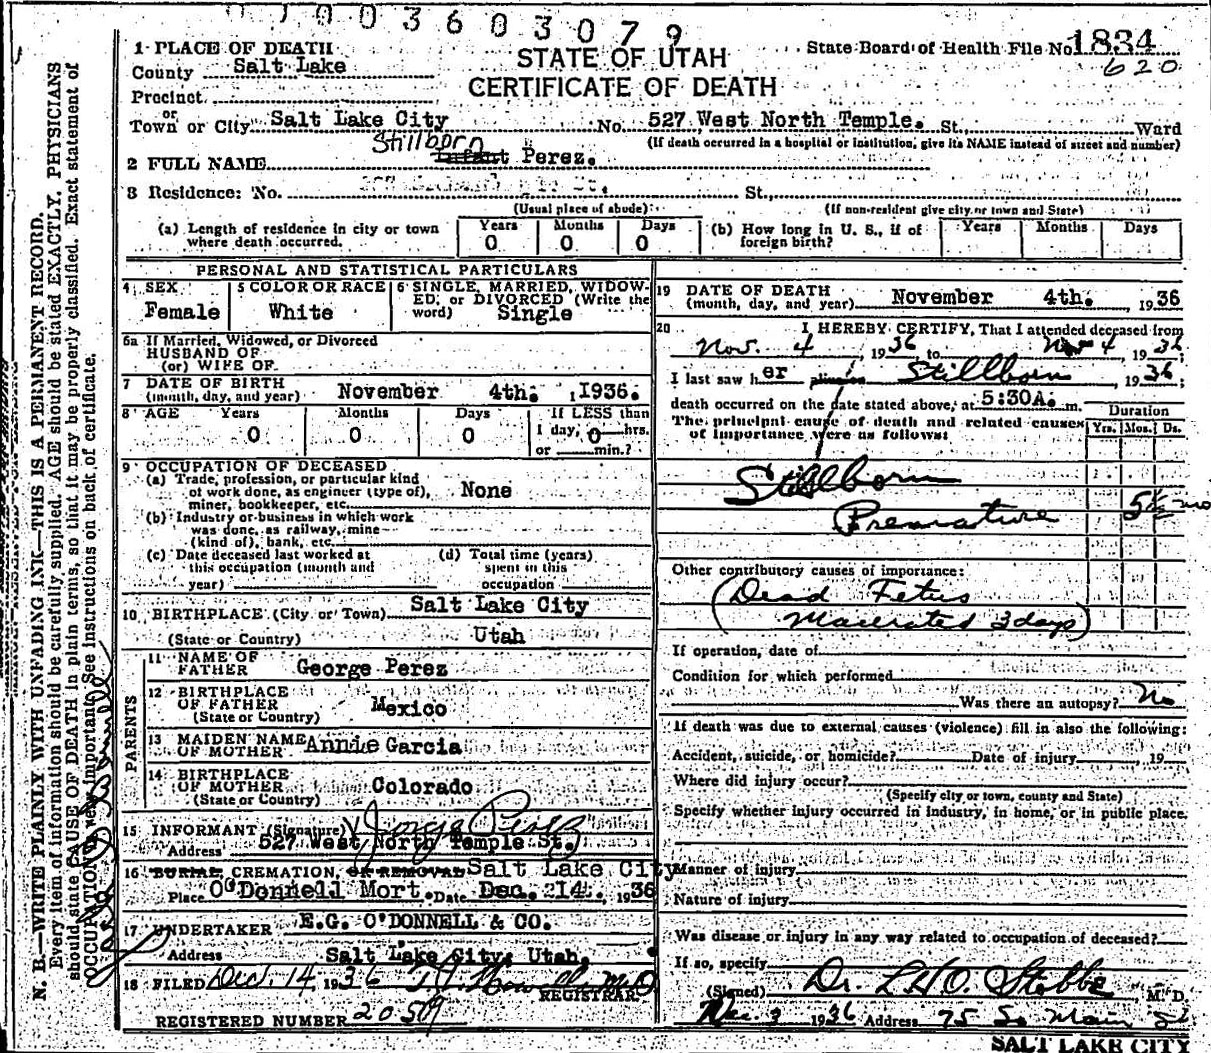 0 1 0 0 3 6 0 3 0 7 9
1 PLACE OF DEATH
STATE OF UTAH
CERTIFICATE OF DEATH
State Board of Health File No. 1834
620
County Salt Lake
Precinct
or
Town or City Salt Lake City No. 527 West North Temple. St., Ward
(If death occurred in a hospital or institution, give its NAME instead of street and number)
Stillborn
2 FULL NAME Infant Perez.
3 Residence: No. St.
(Usual place of abode) (If non-resident give city or town and State)
(a) Length of residence in city or town where death occurred. Years 0 Months 0 Days 0
(b) How long in U. S., if of foreign birth? Years Months Days
PERSONAL AND STATISTICAL PARTICULARS
4 SEX Female
5 COLOR OR RACE White
6 SINGLE, MARRIED, WIDOWED, or DIVORCED (Write the word) Single
6a If Married, Widowed, or Divorced
HUSBAND OF
(or) WIFE OF
7 DATE OF BIRTH (month, day, and year) November 4th. , 1936.
8 AGE Years 0 Months 0 Days 0 If LESS than 1 day, 0 hrs. or min.?
9 OCCUPATION OF DECEASED
(a) Trade, profession, or particular kind of work done, as engineer (type of), miner, bookkeeper, etc. None
(b) Industry or business in which work was done, as railway, mine (kind of), bank, etc.
(c) Date deceased last worked at this occupation (month and year)
(d) Total time (years) spent in this occupation
10 BIRTHPLACE (City or Town) Salt Lake City
(State or Country) Utah
PARENTS
11 NAME OF FATHER George Perez
12 BIRTHPLACE OF FATHER (State or Country) Mexico
13 MAIDEN NAME OF MOTHER Annie Garcia
14 BIRTHPLACE OF MOTHER (State or Country) Colorado
15 INFORMANT (Signature) Jorge Perez
Address 527 West North Temple St.
16 BURIAL, CREMATION, OR REMOVAL Salt Lake City
Place O'Donnell Mort. Date Dec. 214. , 1936
17 UNDERTAKER E.G. O'DONNELL & CO.
Address Salt Lake City, Utah.
18 FILED Dec. 14 1936
REGISTRAR
REGISTERED NUMBER 2059
19 DATE OF DEATH (month, day, and year) November 4th. , 1936
20 I HEREBY CERTIFY, That I attended deceased from
Nov. 4 , 1936 to Nov 4 , 1936;
I last saw her Stillborn , 1936;
death occurred on the date stated above, at 5:30A. m.
The principal cause of death and related causes of importance were as follows:
Duration
Yrs. Mos. Ds.
Stillborn
Premature 5 1/2 mo
Other contributory causes of importance:
(Dead Fetus
Macerated 3 days)
If operation, date of
Condition for which performed
Was there an autopsy? No
If death was due to external causes (violence) fill in also the following:
Accident, suicide, or homicide? Date of injury , 19
Where did injury occur?
(Specify city or town, county and State)
Specify whether injury occurred in industry, in home, or in public place.
Manner of injury
Nature of injury
Was disease or injury in any way related to occupation of deceased?
If so, specify
(Signed) Dr. L H O. Stobbe M. D.
Dec. 3 1936 Address 75 So Main St.
SALT LAKE CITY
N. B.—WRITE PLAINLY WITH UNFADING INK—THIS IS A PERMANENT RECORD.
Every item of information should be carefully supplied. AGE should be stated EXACTLY. PHYSICIANS
should state CAUSE OF DEATH in plain terms, so that it may be properly classified. Exact statement of
OCCUPATION is very important. See instructions on back of certificate.